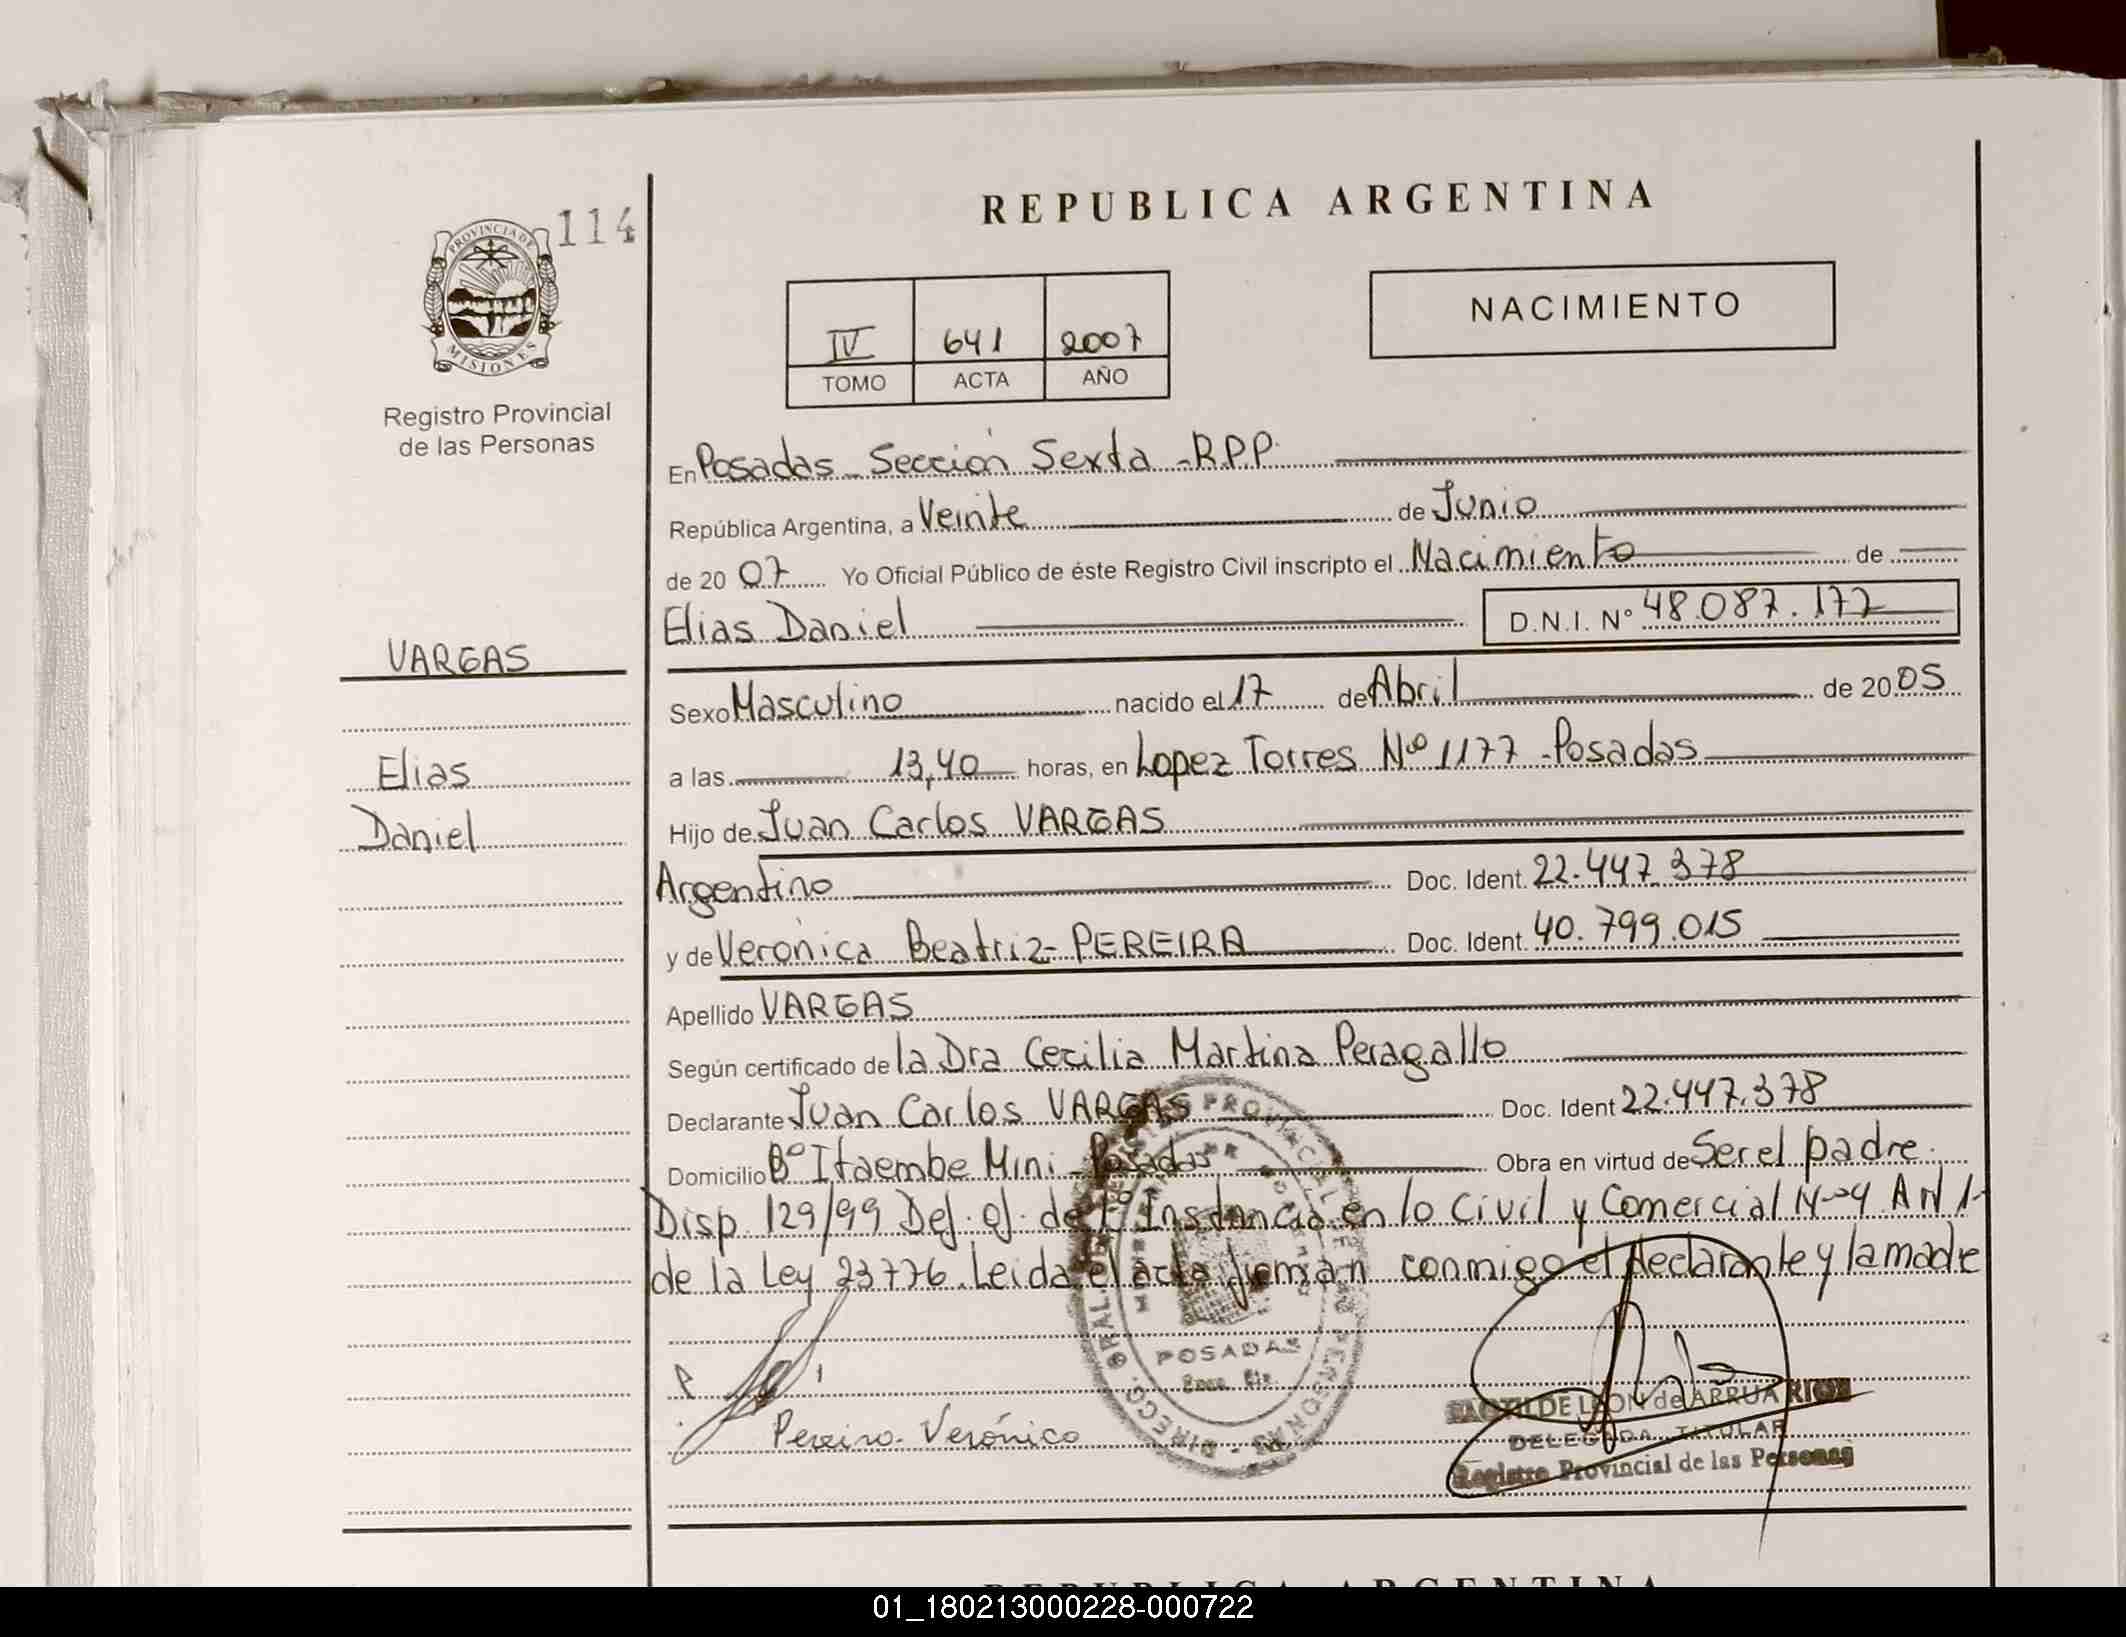 REPUBLICA ARGENTINA
114
PROVINCIA DE
MISIONES
Registro Provincial
de las Personas
NACIMIENTO
IV 641 2007
TOMO ACTA AÑO
En Posadas - Sección Sexta - R.P.P.
República Argentina, a Veinte de Junio
de 20 07 Yo Oficial Público de éste Registro Civil inscripto el Nacimiento de
Elias Daniel D.N.I. Nº 48.087.177
VARGAS
Elias
Daniel
Sexo Masculino nacido el 17 de Abril de 20 05
a las 13,40 horas, en Lopez Torres Nº 1177 - Posadas
Hijo de Juan Carlos VARGAS
Argentino Doc. Ident. 22.447.378
y de Verónica Beatriz PEREIRA Doc. Ident. 40.799.015
Apellido VARGAS
Según certificado de la Dra Cecilia Martina Peragallo
Declarante Juan Carlos VARGAS Doc. Ident 22.447.378
Domicilio Bº Itaembe Mini - Posadas Obra en virtud de Ser el padre.
Disp. 129/99 Def. Of. de 1º Instancia en lo Civil y Comercial Nº 4 Art 1
de la Ley 23776. Leida el acta firman conmigo el declarante y la madre
POSADAS
Pereira Verónica
DE LEON de ARRUA RIOS
DELEGADA TITULAR
Registro Provincial de las Personas
REPUBLICA ARGENTINA
01_180213000228-000722